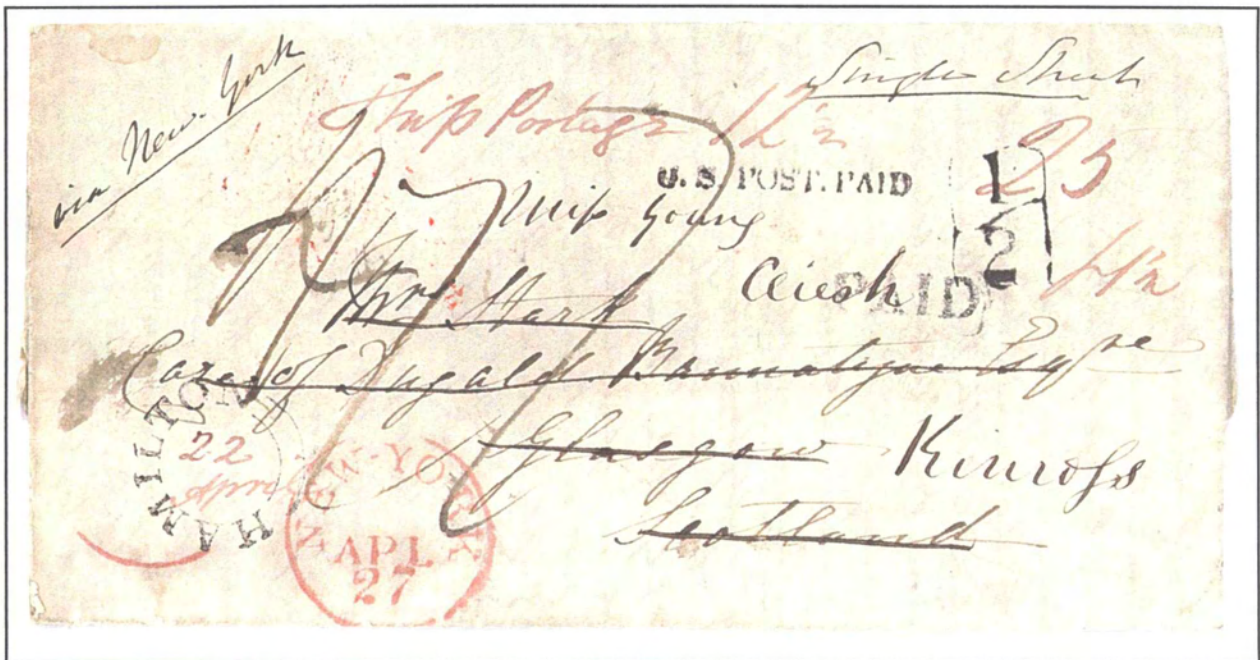 via New-York
Single Sheet
Ship Postage 12½
25
U.S. POST. PAID
1
2
Miss Young
Cleish
PAID
Wm Stark
Care of Dugald Bannatyne Esqre
Glasgow
Kinross
Scotland
HAMILTON
22
April
NEW-YORK
APL
27